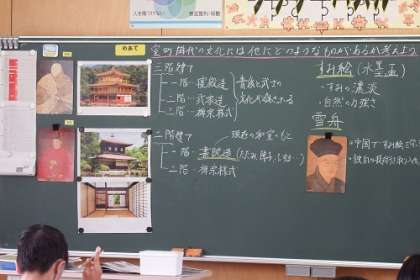 めあて
室町時代の文化には他にどのようなものがあるか考えよう
三階建て
一階…寝殿造
二階…武家造
三階…禅宗様式
貴族と武士の
文化が混ざっている
二階建て
現在の和室のもと
一階…書院造(たたみ、障子、
二階…禅宗様式
すみ絵(水墨画)
・すみの濃淡
・自然の力強さ
雪舟
・中国ですみ絵を学
・独自の